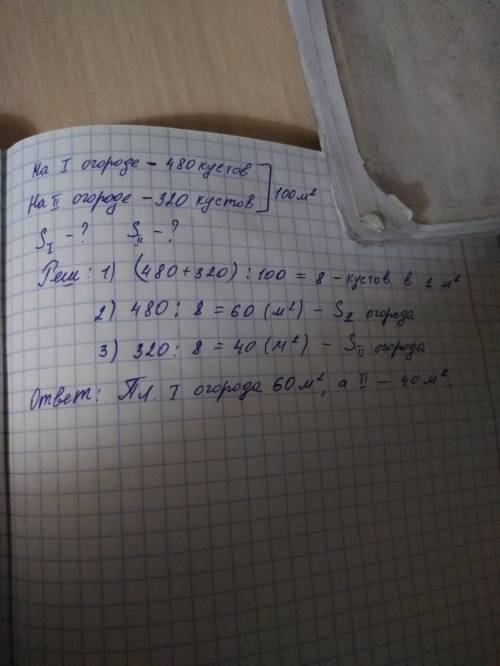 На I огороде – 480 кустов
На II огороде – 320 кустов ] 100 м²
S_I – ? S_II – ?
Реш: 1) (480+320) : 100 = 8 – кустов в 1 м²
2) 480 : 8 = 60 (м²) – S_I огорода
3) 320 : 8 = 40 (м²) – S_II огорода
Ответ: Пл. I огорода 60 м², а II – 40 м².